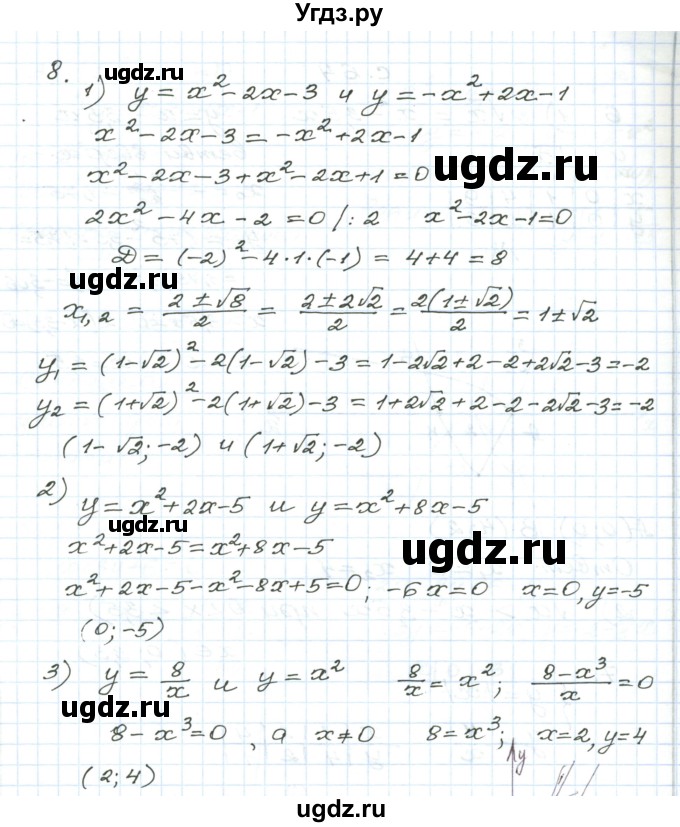 Угдз.ру
8.
ugdz.ru
1) y = x² - 2x - 3 и y = -x² + 2x - 1
x² - 2x - 3 = -x² + 2x - 1
ugdz.ru
x² - 2x - 3 + x² - 2x + 1 = 0
2x² - 4x - 2 = 0 /: 2    x² - 2x - 1 = 0
D = (-2)² - 4·1·(-1) = 4 + 4 = 8
ugdz.ru
x₁,₂ = (2 ± √8)/2 = (2 ± 2√2)/2 = 2(1 ± √2)/2 = 1 ± √2
y₁ = (1-√2)² - 2(1-√2) - 3 = 1 - 2√2 + 2 - 2 + 2√2 - 3 = -2
y₂ = (1+√2)² - 2(1+√2) - 3 = 1 + 2√2 + 2 - 2 - 2√2 - 3 = -2
(1-√2; -2) и (1+√2; -2)
2) y = x² + 2x - 5 и y = x² + 8x - 5
ugdz.ru
x² + 2x - 5 = x² + 8x - 5
ugdz.ru
x² + 2x - 5 - x² - 8x + 5 = 0; -6x = 0    x = 0, y = -5
(0; -5)
3) y = 8/x и y = x²    8/x = x²; (8 - x³)/x = 0
ugdz.ru
8 - x³ = 0, а x ≠ 0    8 = x³; x = 2, y = 4
(2; 4)
ugdz.ru